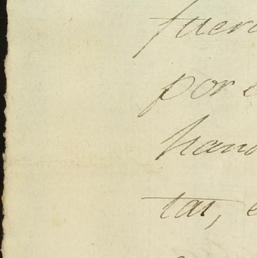 fuer
por e
han
tar, e